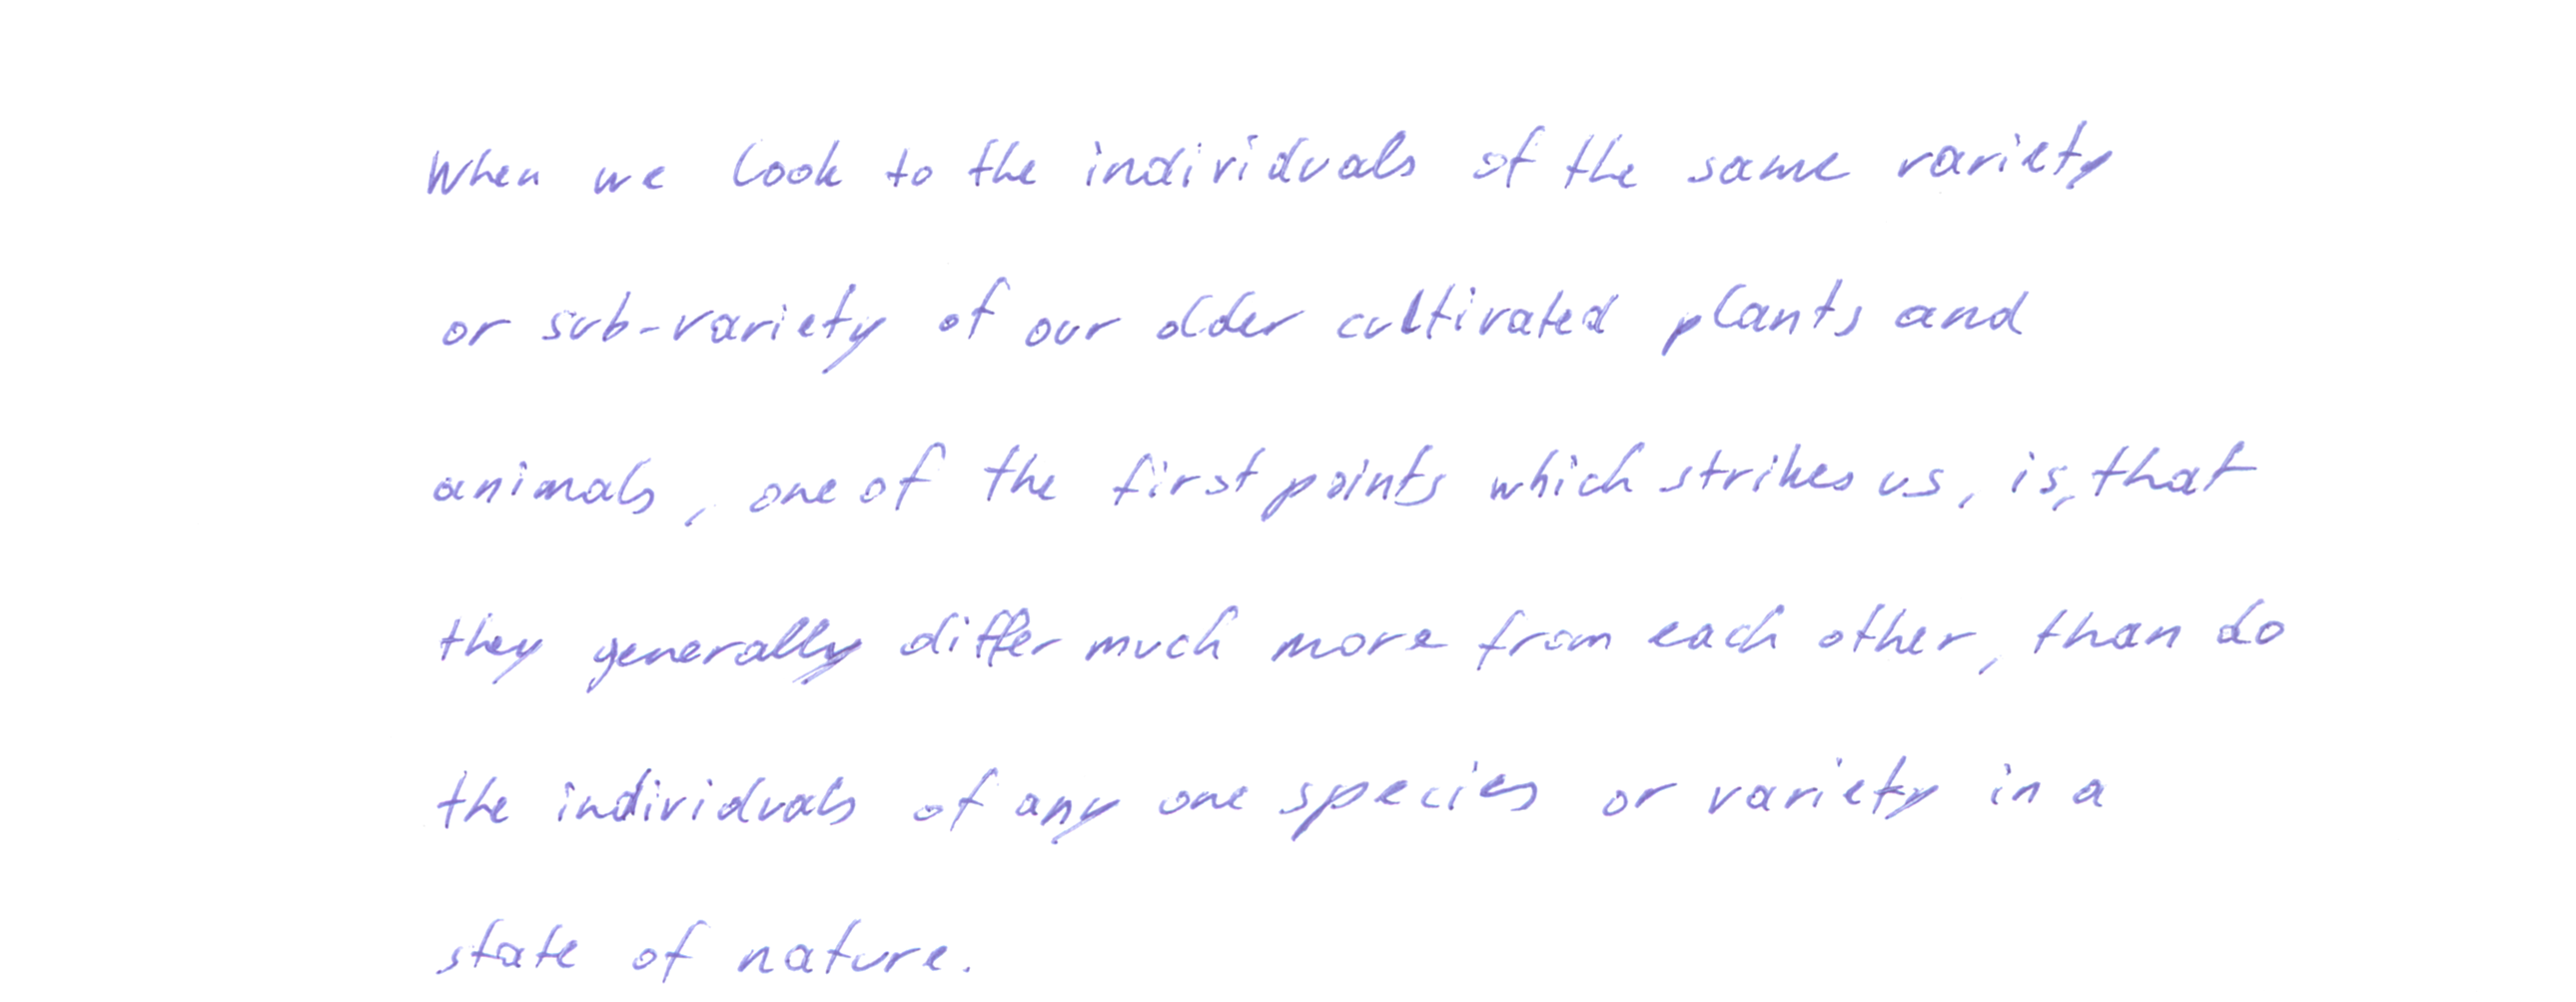 When we look to the individuals of the same variety
or sub-variety of our older cultivated plants and
animals, one of the first points which strikes us, is, that
they generally differ much more from each other, than do
the individuals of any one species or variety in a
state of nature.